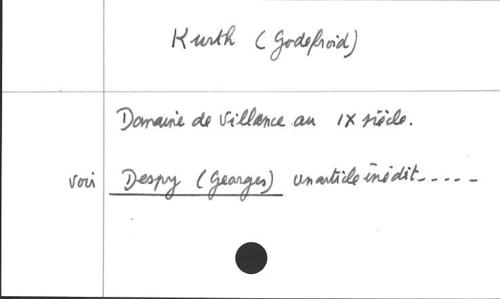 Kurth (Godefroid)
Domaine de Villance au IX siècle.
voir Despy (Georges) un article inédit-----